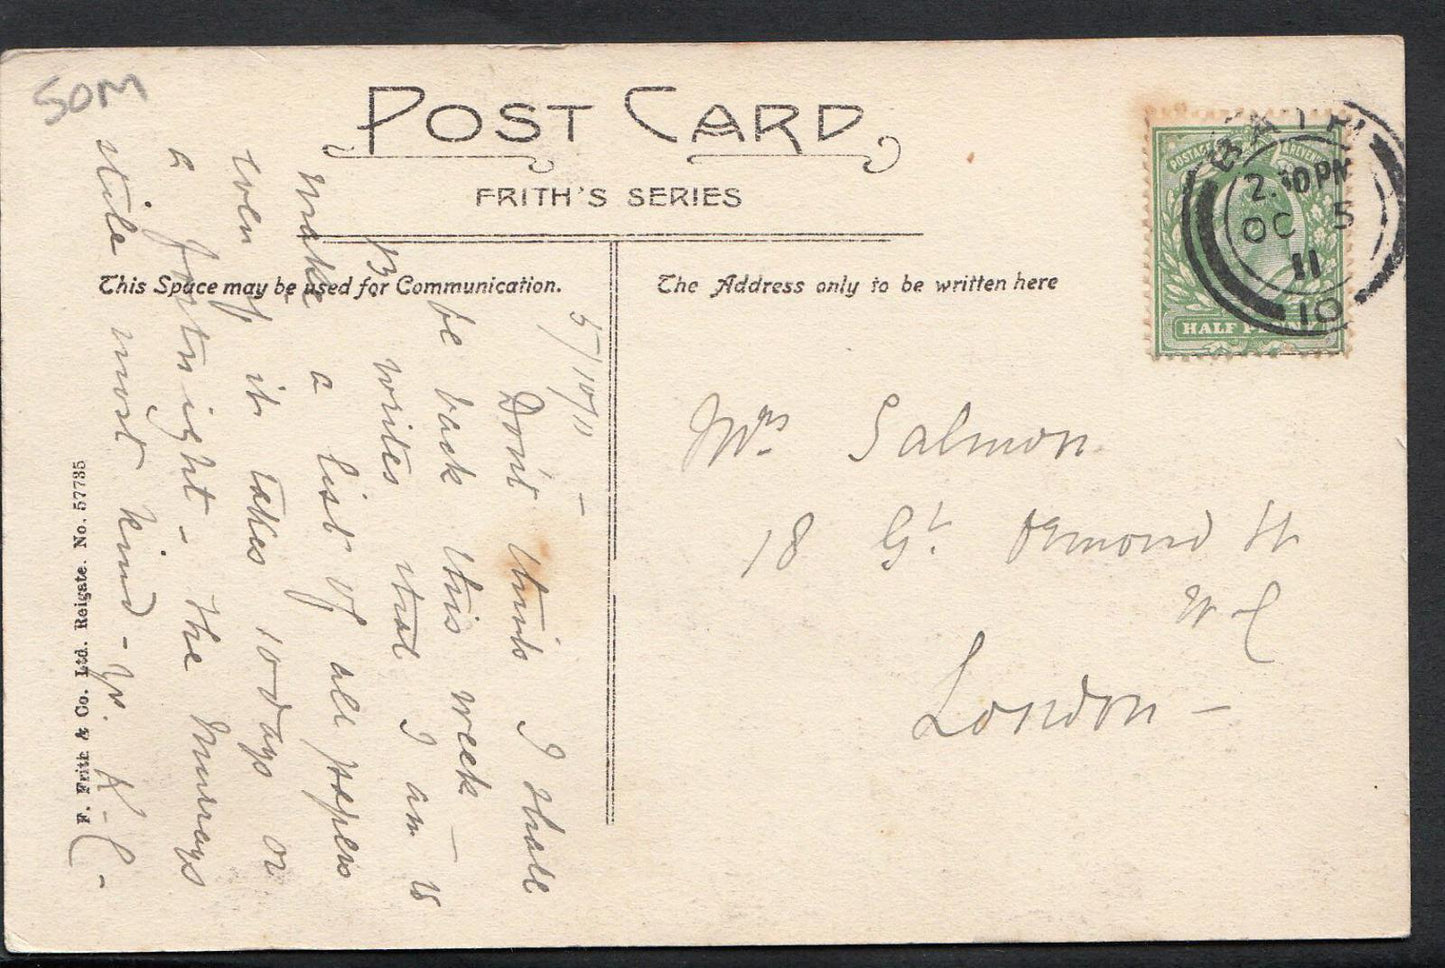 SOM
POST CARD
FRITH'S SERIES
This Space may be used for Communication.
The Address only to be written here
POSTAGE
HALF PENNY
BATH
2.30PM
OC 5
11
10
5/10/11 -
Don't think I shall
be back this week -
B. writes that I am to
make a list of all papers
even if it takes 10 days or
a fortnight - The Murrays
still most kind - Yr. K-C-
Mrs Salmon
18 Gt. Ormond St
W C
London -
F. Frith & Co. Ltd. Reigate. No. 57735